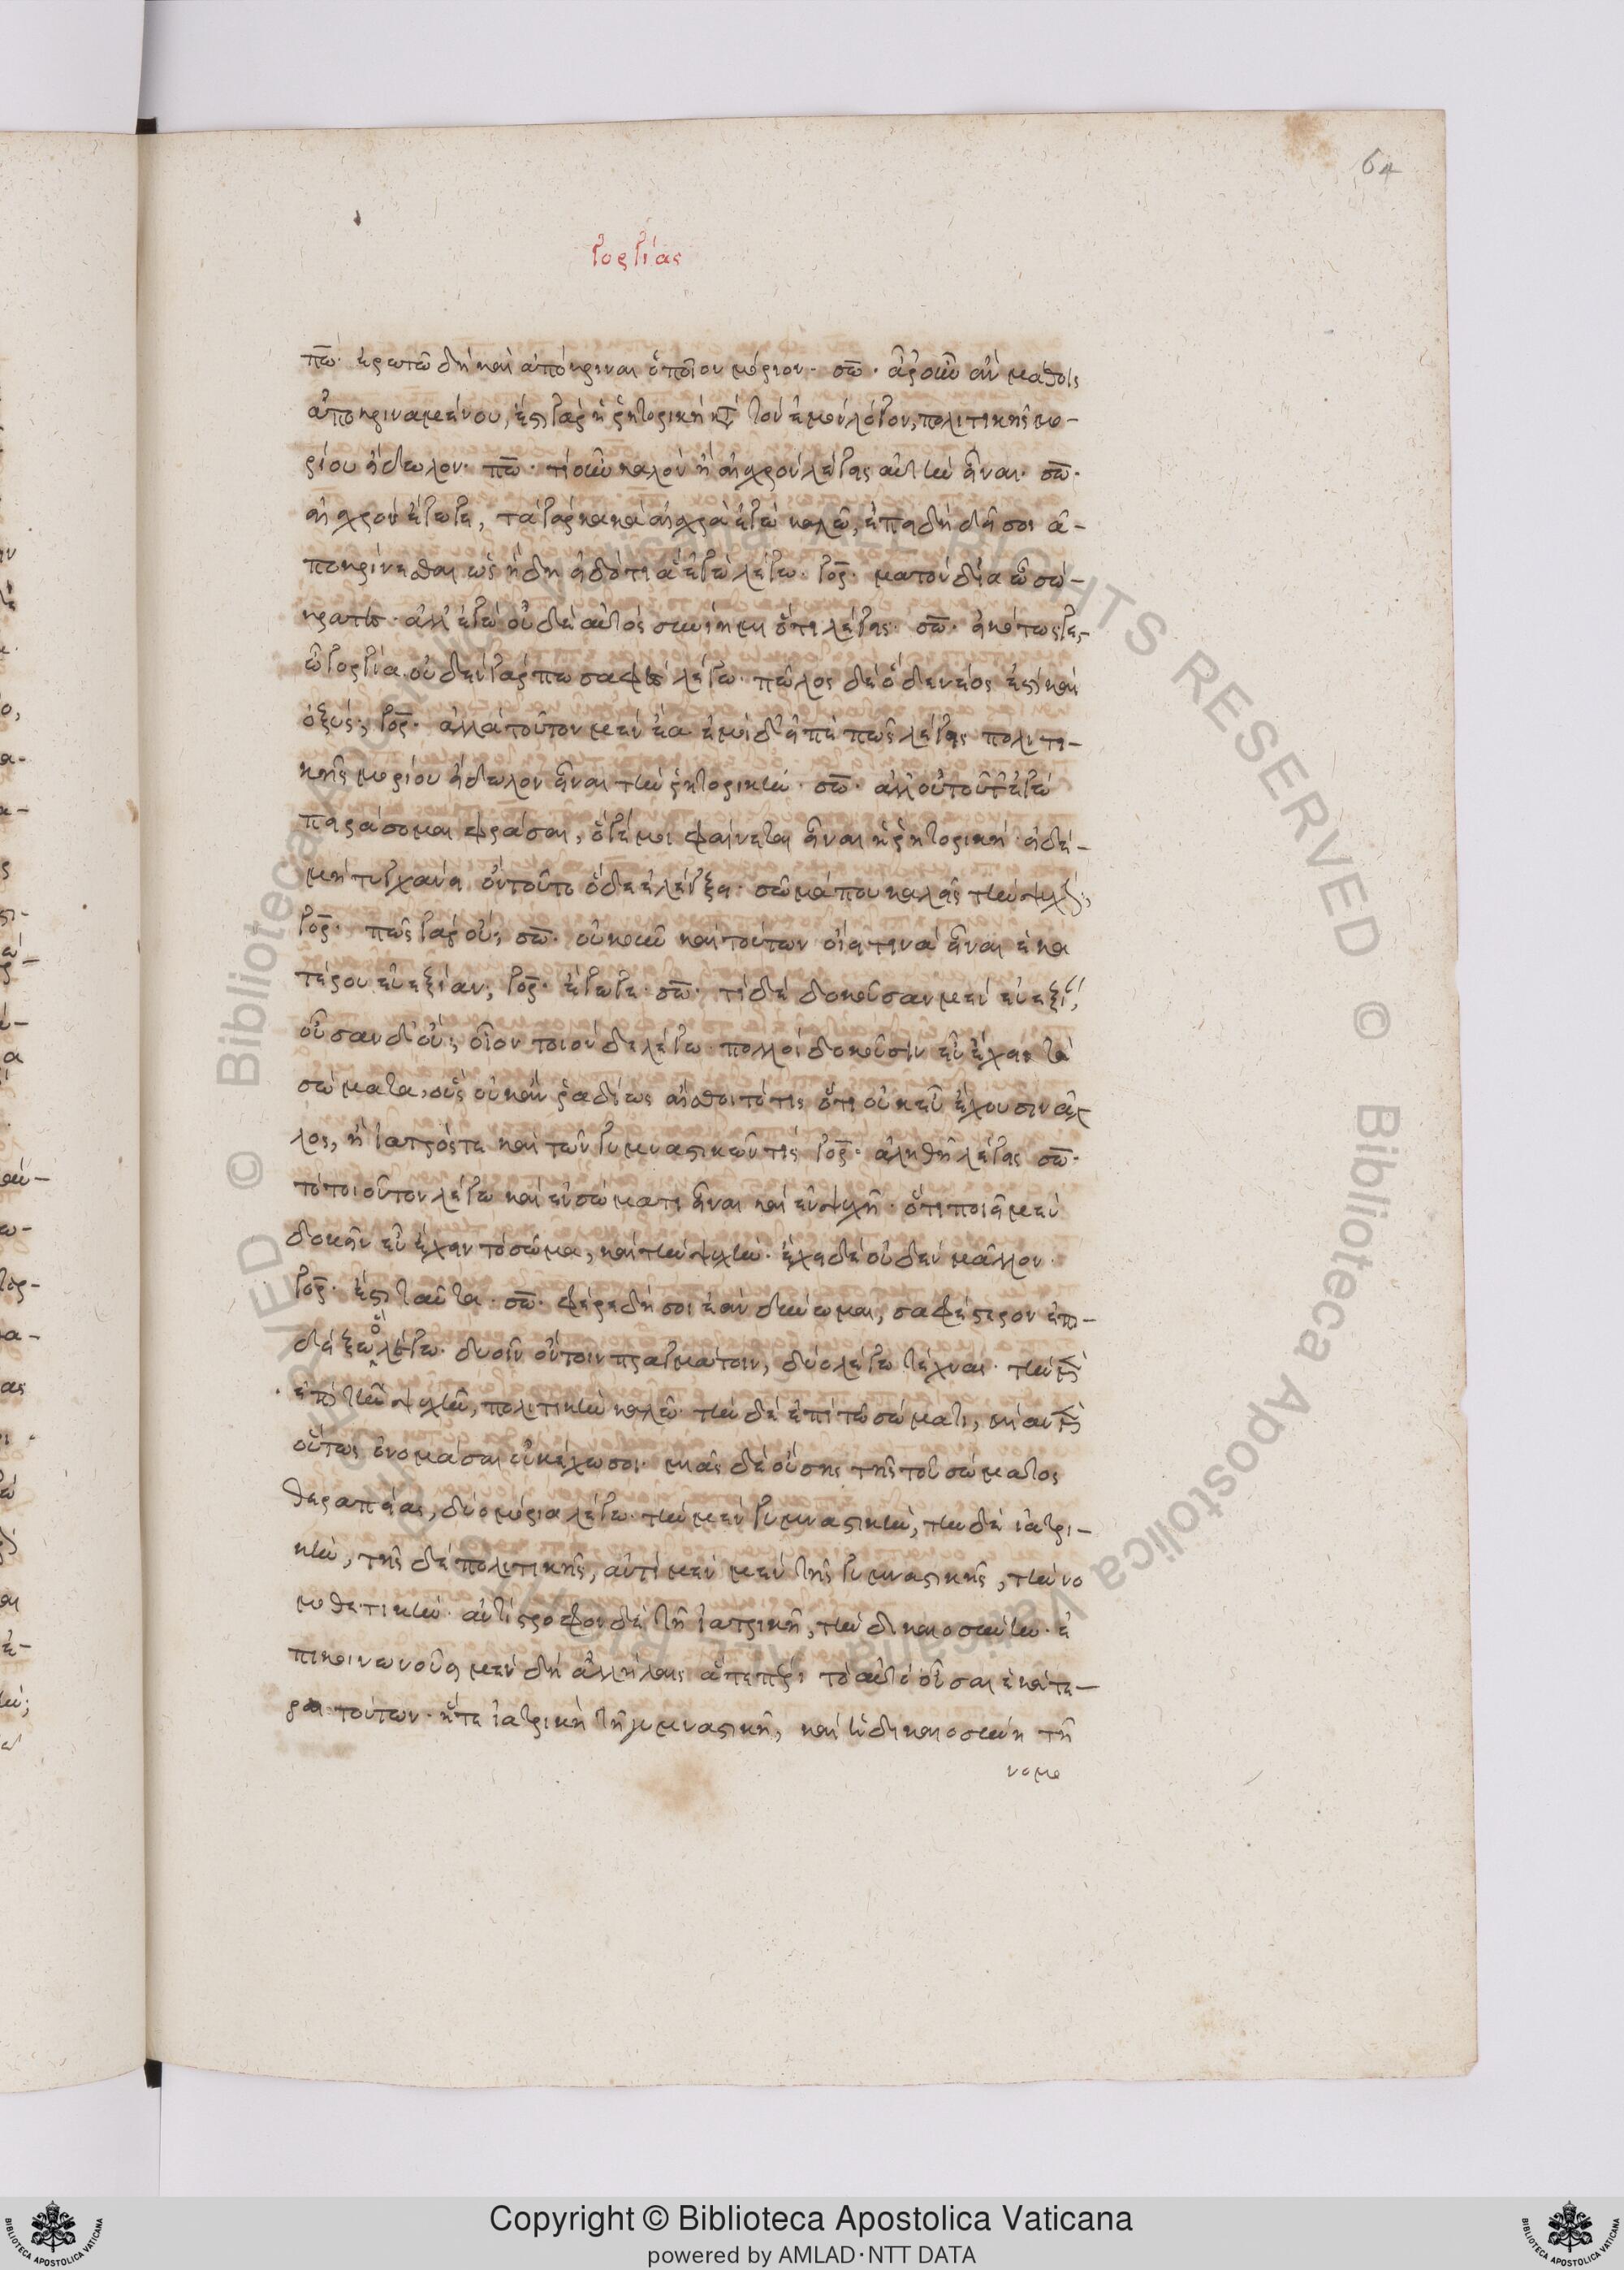 64
Γοργίας
πω. ἐρωτῶ δὴ καὶ ἀπόκριναι ὁποῖον μόριον. σω. ἆρ' οὖν ἂν μάθοις
ἀποκριναμένου, ἔστι γὰρ ἡ ῥητορικὴ κατὰ τὸν ἐμὸν λόγον, πολιτικῆς μο-
ρίου εἴδωλον. πω. τί οὖν καλὸν ἢ αἰσχρὸν λέγεις αὐτὴν εἶναι. σω.
αἰσχρὸν ἔγωγε, τὰ γὰρ κακὰ αἰσχρὰ ἐγὼ καλῶ, ἐπειδὴ δεῖ σοι ἀ-
ποκρίνεσθαι ὡς ἤδη εἰδότι ἃ ἐγὼ λέγω. γορ. μὰ τὸν δία ὦ σώ-
κρατες. ἀλλ' ἐγὼ οὐδὲ αὐτὸς συνίημι ὅτι λέγεις. σω. εἰκότως γε,
ὦ γοργία. οὐδὲν γάρ πω σαφὲς λέγω. πῶλος δὲ ὅδε νέος ἐστὶ καὶ
ὀξύς; γορ. ἀλλὰ τοῦτον μὲν ἔα ἐμοὶ δ' εἰπὲ πῶς λέγεις πολιτι-
κῆς μορίου εἴδωλον εἶναι τὴν ῥητορικήν. σω. ἀλλ' οὖν τοῦτ' ἐγὼ
πειράσομαι φράσαι, ὅ γέ μοι φαίνεται εἶναι ἡ ῥητορική. εἰ δὲ
μὴ τυγχάνει ὂν τοῦτο ὅδε ἐλέγξει. σῶμά που καλεῖς τι καὶ ψυχήν;
γορ. πῶς γὰρ οὔ; σω. οὐκοῦν καὶ τούτων οἴει τινὰ εἶναι ἑκα
τέρου εὐεξίαν; γορ. ἔγωγε. σω. τί δὲ δοκοῦσαν μὲν εὐεξίαν,
οὖσαν δ' οὔ; οἷον τοιόνδε λέγω. πολλοὶ δοκοῦσιν εὖ ἔχειν τὰ
σώματα, οὓς οὐκ ἂν ῥαδίως αἴσθοιτό τις ὅτι οὐκ εὖ ἔχουσιν ἀλ
λος, ἢ ἰατρός τε καὶ τῶν γυμναστικῶν τις γορ. ἀληθῆ λέγεις σω.
τὸ τοιοῦτον λέγω καὶ ἐν σώματι εἶναι καὶ ἐν ψυχῇ. ὅτι ποιεῖ μὲν
δοκεῖν εὖ ἔχειν τὸ σῶμα, καὶ τὴν ψυχήν. ἔχει δὲ οὐδὲν μᾶλλον.
γορ. ἔστι ταῦτα. σω. φέρε δή σοι ἐὰν δύνωμαι, σαφέστερον ἐπι-
δείξω ὃ λέγω. δυοῖν ὄντοιν πραγμάτοιν, δύο λέγω τέχνας. τὴν μὲν
ἐπὶ τῇ ψυχῇ, πολιτικὴν καλῶ. τὴν δὲ ἐπὶ τῷ σώματι, μίαν μὲν
οὕτως ὀνομάσαι οὐκ ἔχω σοι. μιᾶς δὲ οὔσης τῆς τοῦ σώματος
θεραπείας, δύο μόρια λέγω. τὴν μὲν γυμναστικήν, τὴν δὲ ἰατρι-
κήν, τῆς δὲ πολιτικῆς, ἀντὶ μὲν μὲν τῆς γυμναστικῆς, τὴν νο
μοθετικήν. ἀντίστροφον δὲ τῇ ἰατρικῇ, τὴν δικαιοσύνην. ἐ
πικοινωνοῦσι μὲν δὴ ἀλλήλαις ἅτε περὶ τὸ αὐτὸ οὖσαι ἑκάτε-
ραι τούτων. ἥτε ἰατρικὴ τῇ γυμναστικῇ, καὶ ἡ δικαιοσύνη τῇ
νομο
© Biblioteca Apostolica Vaticana ALL RIGHTS RESERVED
Copyright © Biblioteca Apostolica Vaticana
powered by AMLAD·NTT DATA
BIBLIOTECA APOSTOLICA VATICANA
BIBLIOTECA APOSTOLICA VATICANA